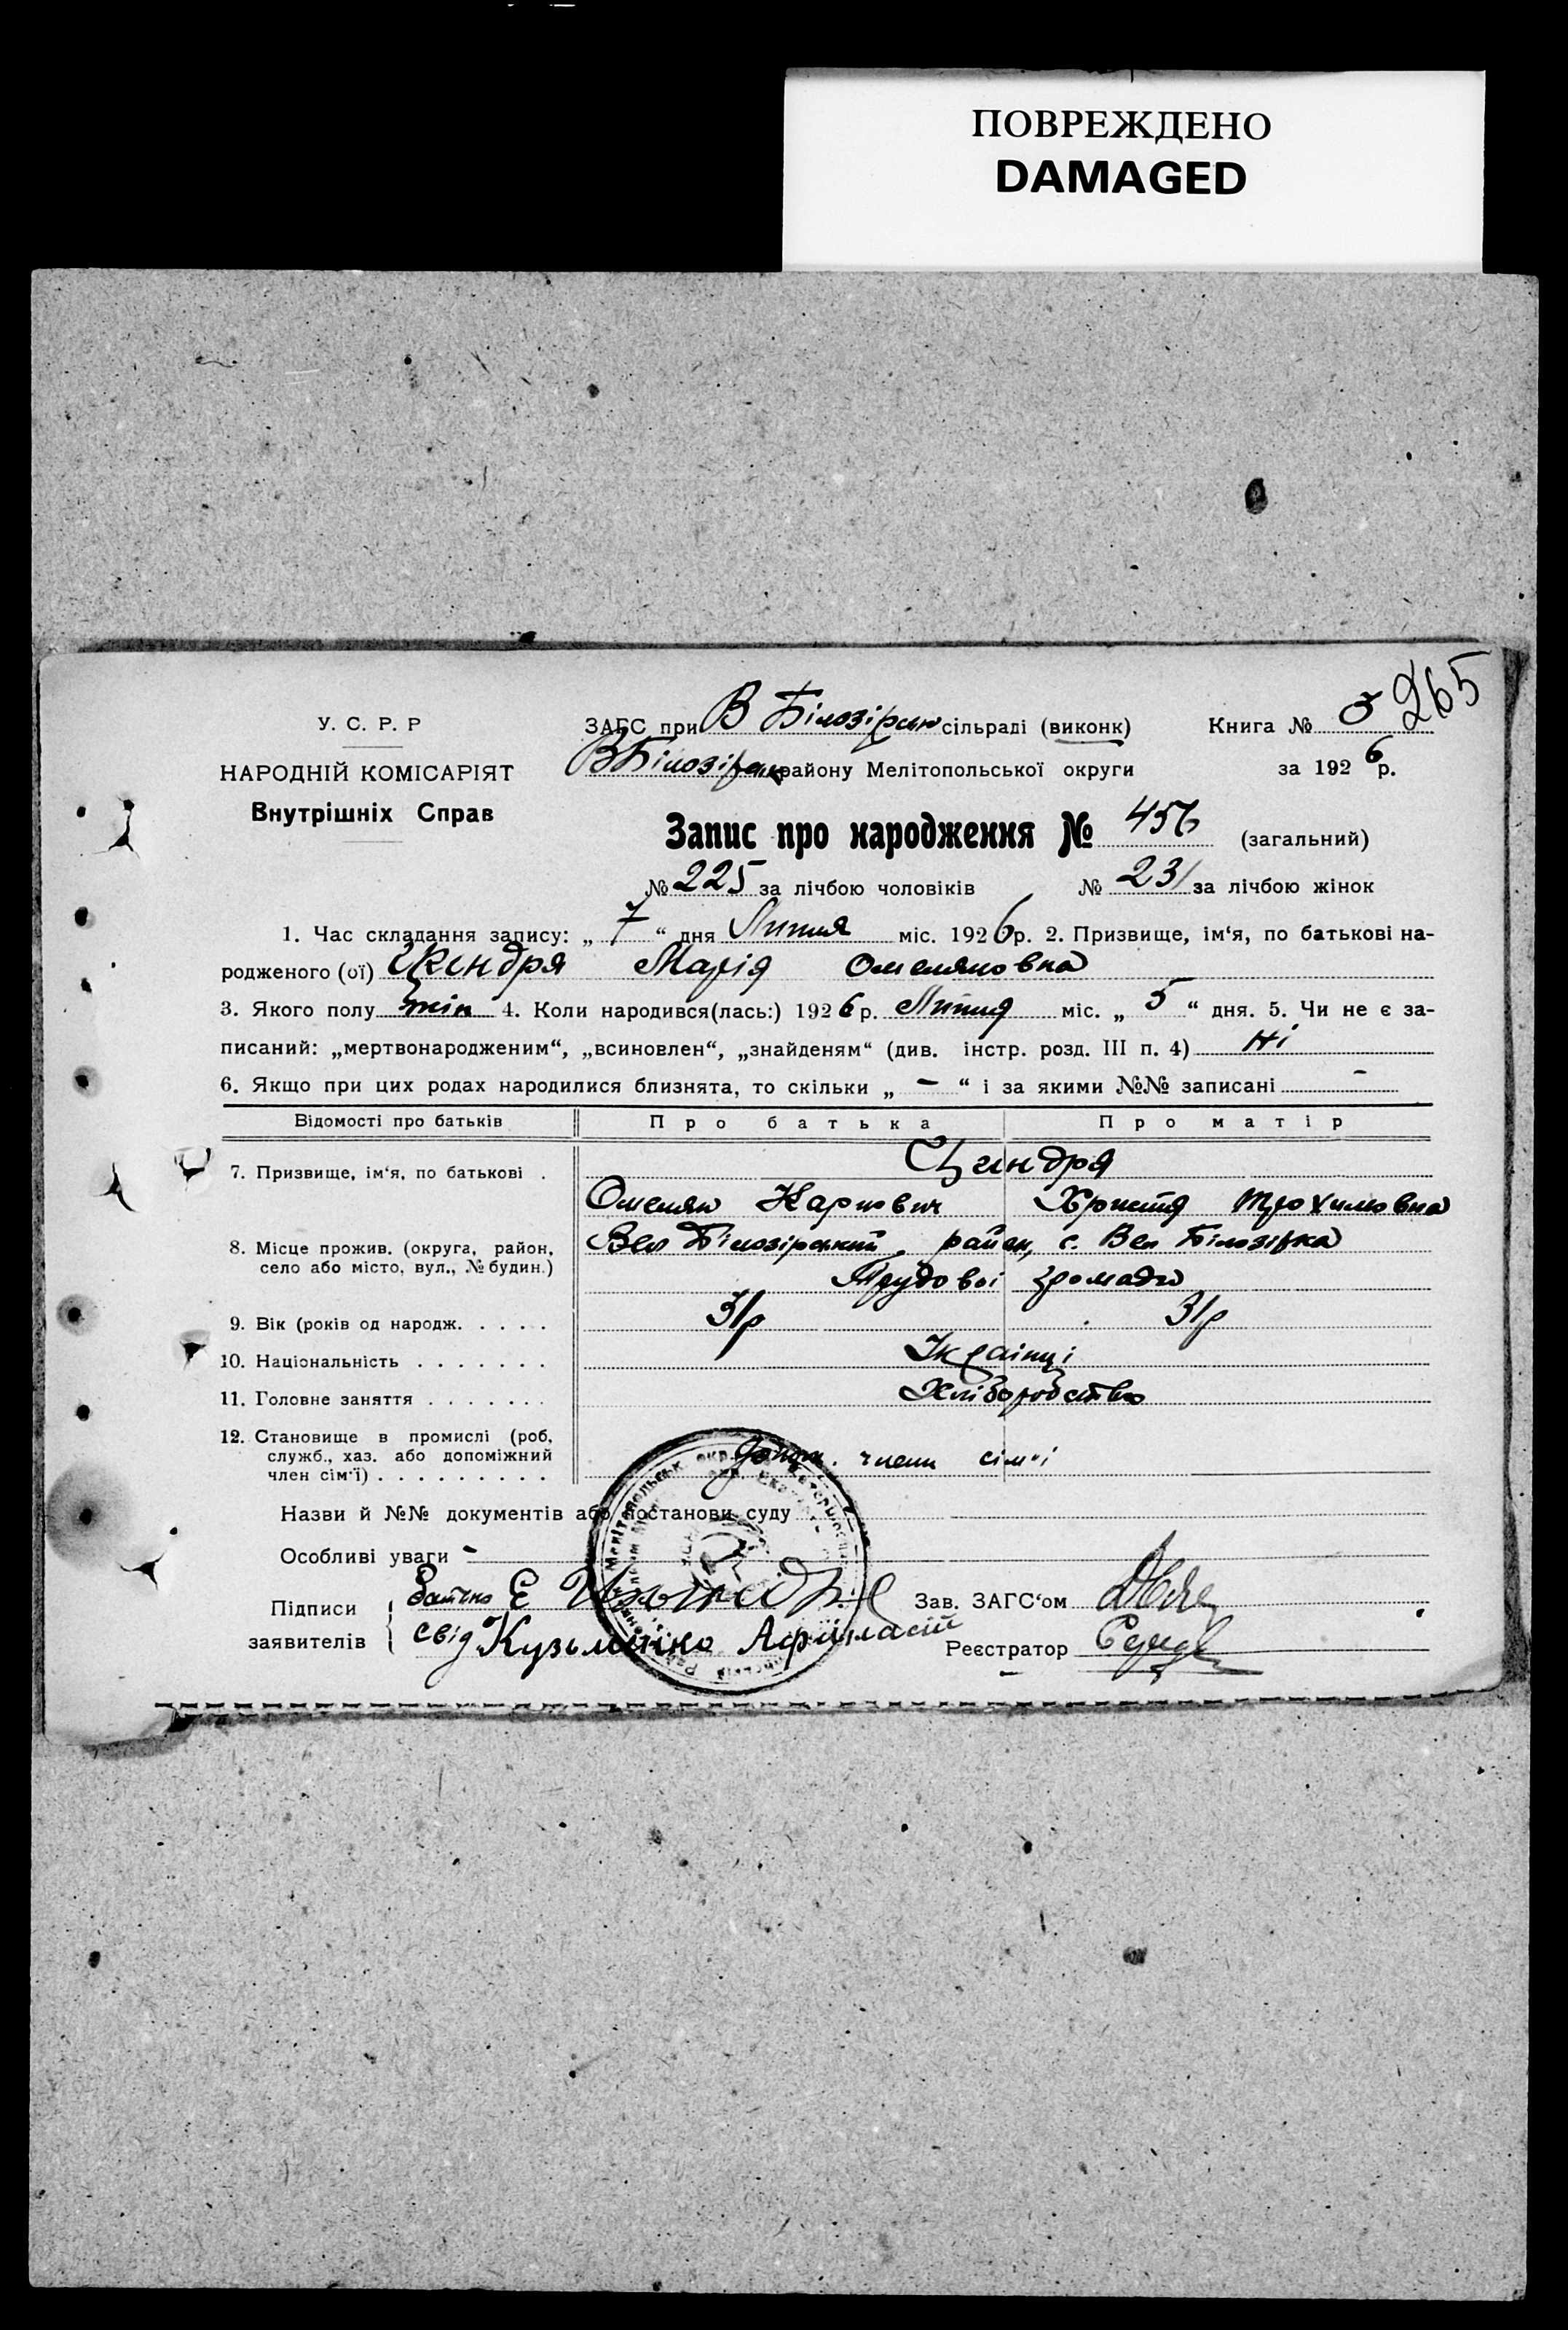 ПОВРЕЖДЕНО
DAMAGED
265
У. С. Р. Р
НАРОДНІЙ КОМІСАРІЯТ
Внутрішніх Справ
ЗАГС при В Білозірськ сільраді (виконк)
Книга № 3
ВБілозірськ району Мелітопольської округи
за 1926 р.
Запис про народження № 456 (загальний)
№ 225 за лічбою чоловіків № 231 за лічбою жінок
1. Час складання запису: „ 7 “ дня Липня міс. 1926 р. 2. Призвище, ім‘я, по батькові на-
родженого (ої) Цендря Марія Омеляновна
3. Якого полу жін 4. Коли народився(лась:) 1926 р. Липня міс. „ 5 “ дня. 5. Чи не є за-
писаний: „мертвонародженим“, „всиновлен“, „знайденям“ (див. інстр. розд. III п. 4) Ні
6. Якщо при цих родах народилися близнята, то скільки „ — “ і за якими №№ записані -
Відомості про батьків
Про батька
Про матір
7. Призвище, ім‘я, по батькові .
Цендря
Омелян Карпович
Христя Трохимовна
8. Місце прожив. (округа, район,
село або місто, вул., № будин.)
Вел Білозірський район, с. Вел Білозірка
Трудової громади
9. Вік (років од народж. . . . .
31р
31р
10. Національність . . . . . . .
Українці
11. Головне заняття . . . . . . .
Хліборобство
12. Становище в промислі (роб,
служб., хаз. або допоміжний
член сім‘ї) . . . . . . . . .
члени сім'ї
Назви й №№ документів або постанови суду
Особливі уваги -
Підписи
заявителів
Батько Є
свід Кузьменко Афанасій
Зав. ЗАГС‘ом
Реєстратор